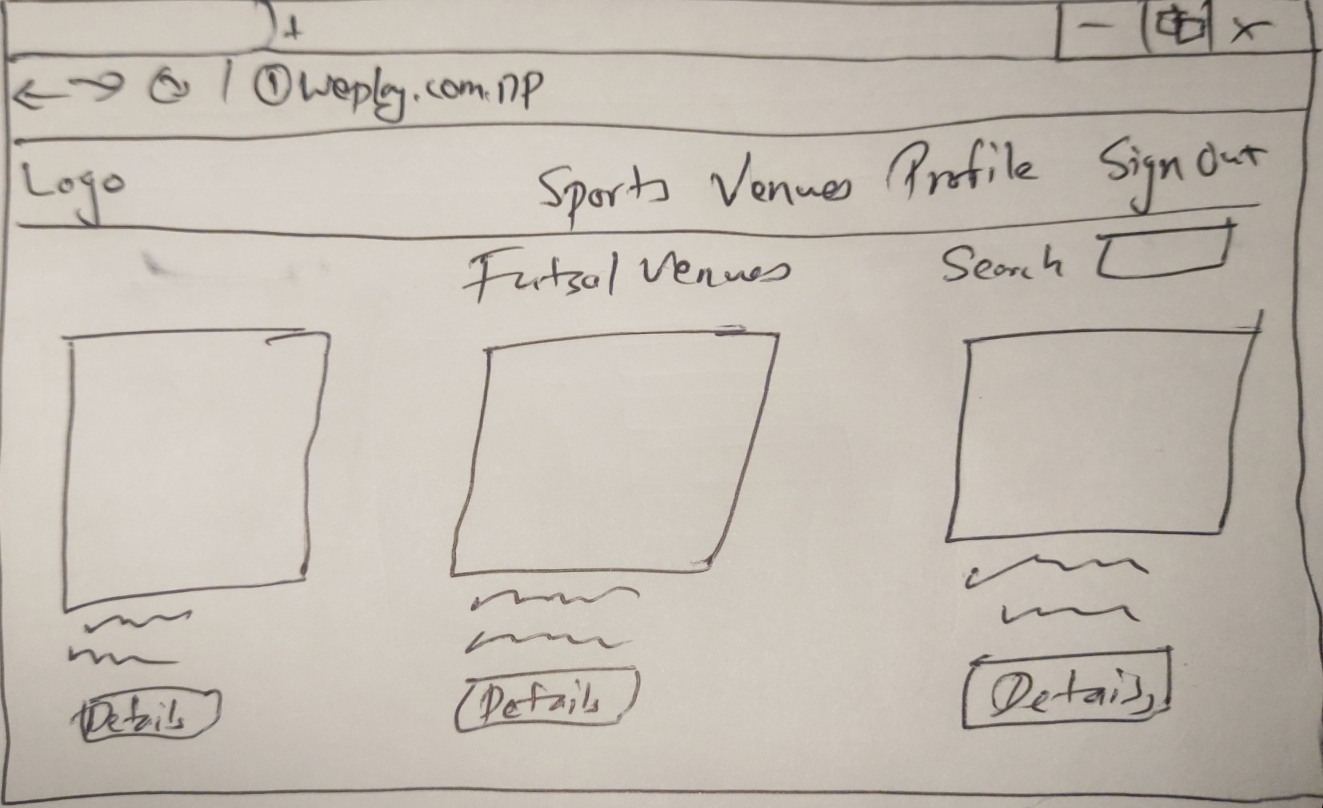 weplay.com.np
Logo Sports Venues Profile Sign Out
Futsal Venues Search
Details Details Details